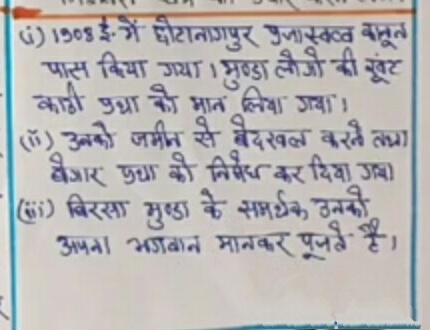 (i) 1908 ई. में छोटानागपुर प्रजास्वत्व कानून
पास किया गया। मुण्डा लोगो की खूंट
काठी प्रथा को मान लिया गया।
(ii) उनको जमीन से बेदखल करने तथा
बेगार प्रथा को निषेध कर दिया गया
(iii) बिरसा मुण्डा के समर्थक उनको
अपना भगवान मानकर पूजते है।